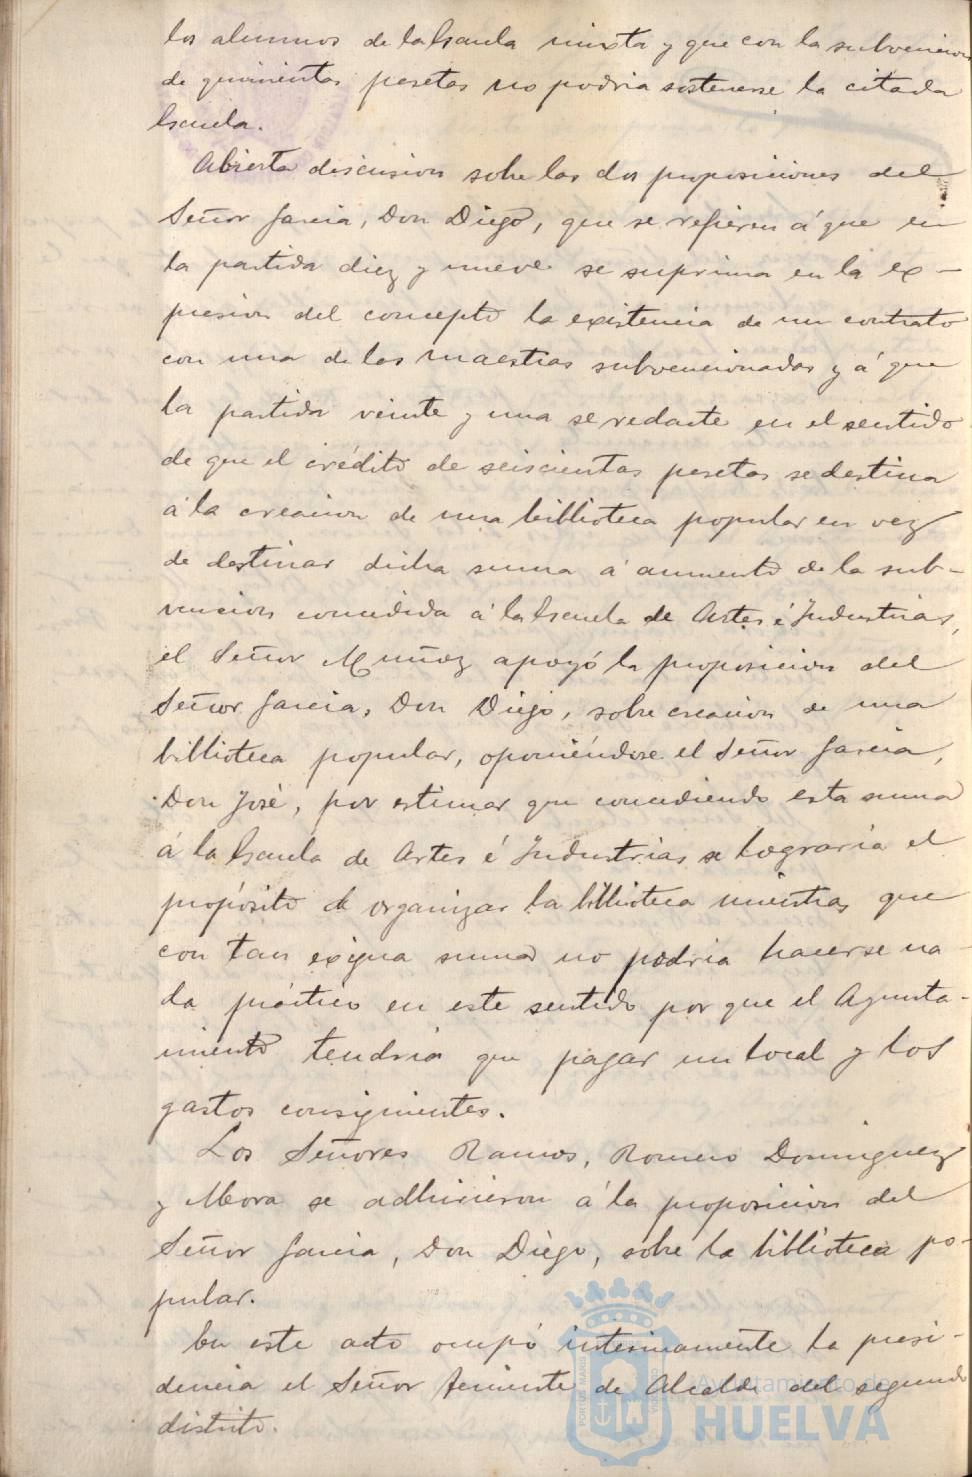 los alumnos de la Escuela mixta y que con la subvencion
de quinientas pesetas no podria sostenerse la citada
Escuela.
Abierta discusion sobre las dos proposiciones del
Señor Garcia, Don Diego, que se refieren á que en
la partida diez y nueve se suprima en la ex-
presion del concepto la existencia de un contrato
con una de las maestras subvencionadas y á que
la partida veinte y una se redacte en el sentido
de que el crédito de seiscientas pesetas se destina
á la creacion de una biblioteca popular en vez
de destinar dicha suma á aumento de la sub-
vencion concedida á la Escuela de Artes é Industrias,
el Señor Muñoz apoyó la proposicion del
Señor Garcia, Don Diego, sobre creacion de una
biblioteca popular, oponiéndose el Señor Garcia,
Don José, por estimar que concediendo esta suma
á la Escuela de Artes é Industrias se lograria el
propósito de organizar la biblioteca mientras que
con tan exigua suma no podria hacerse na-
da práctico en este sentido por que el Ayunta-
miento tendria que pagar un local y los
gastos consiguientes.
Los Señores Ramos, Romero Dominguez
y Mora se adhirieron á la proposicion del
Señor Garcia, Don Diego, sobre la biblioteca po-
pular.
En este acto ocupó interinamente la presi-
dencia el Señor Teniente de Alcalde del segundo
distrito.
Ayuntamiento de
HUELVA